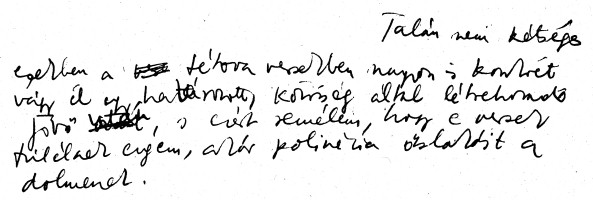 Talán nem kétséges
ezekben a tétova versekben nagyon is konkrét
vágy él egy határozott, közösség által létrehozandó
jövő , s ezért remélem, hogy e versek
túlélnek engem, akár polinézia őslakóit a
dolmenek.